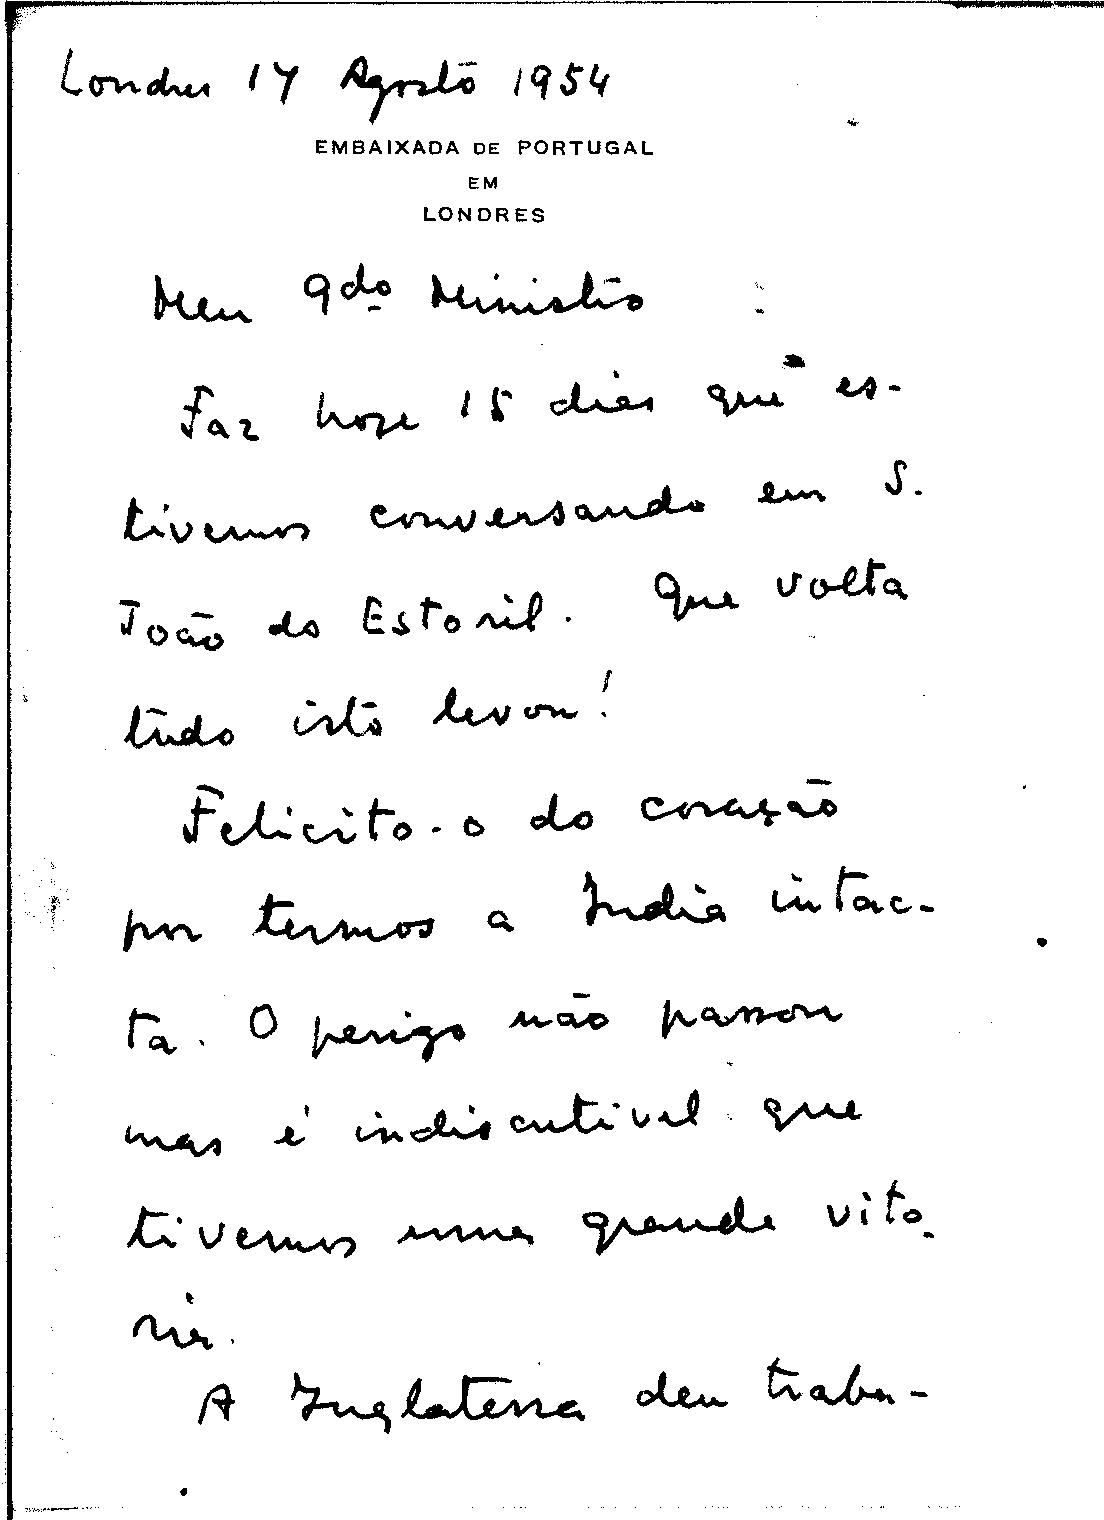 Londres 17 Agosto 1954
EMBAIXADA DE PORTUGAL
EM
LONDRES
Meu qdo Ministro
Faz hoje 15 dias que es-
tivemos conversando em S.
João do Estoril. Que volta
tudo isto levou!
Felicito-o do coração
por termos a India intac-
ta. O perigo não passou
mas é indiscutivel que
tivemos uma grande vito-
ria.
A Inglaterra deu traba-